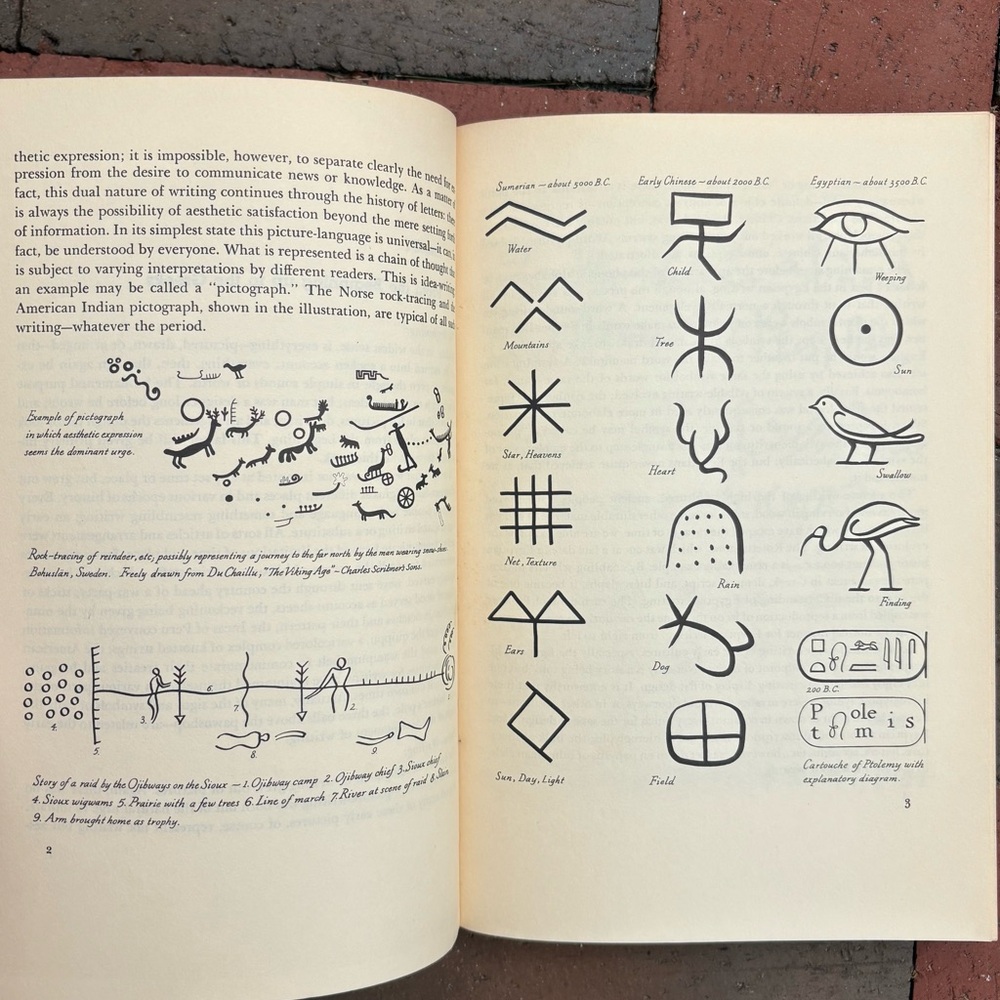 thetic expression; it is impossible, however, to separate clearly the need for
pression from the desire to communicate news or knowledge. As a matter
fact, this dual nature of writing continues through the history of letters:
is always the possibility of aesthetic satisfaction beyond the mere setting
of information. In its simplest state this picture-language is universal—it
fact, be understood by everyone. What is represented is a chain of thought
is subject to varying interpretations by different readers. This is idea-writing
an example may be called a "pictograph." The Norse rock-tracing and
American Indian pictograph, shown in the illustration, are typical of all
writing—whatever the period.
Example of pictograph
in which aesthetic expression
seems the dominant urge.
Rock-tracing of reindeer, etc, possibly representing a journey to the far north by the man wearing
Bohuslän, Sweden. Freely drawn from Du Chaillu, "The Viking Age"—Charles Scribner's Sons.
4.
5.
3.
6.
7.
2.
8.
9.
Story of a raid by the Ojibways on the Sioux — 1. Ojibway camp 2. Ojibway chief 3. Sioux chief
4. Sioux wigwams 5. Prairie with a few trees 6. Line of march 7. River at scene of raid 8.
9. Arm brought home as trophy.
2
Sumerian — about 3000 B.C.
Water
Mountains
Star, Heavens
Net, Texture
Ears
Sun, Day, Light
Early Chinese — about 2000 B.C.
Child
Tree
Heart
Rain
Dog
Field
Egyptian — about 3500 B.C.
Weeping
Sun
Swallow
Finding
200 B.C.
P ole i s
t m
Cartouche of Ptolemy with
explanatory diagram.
3